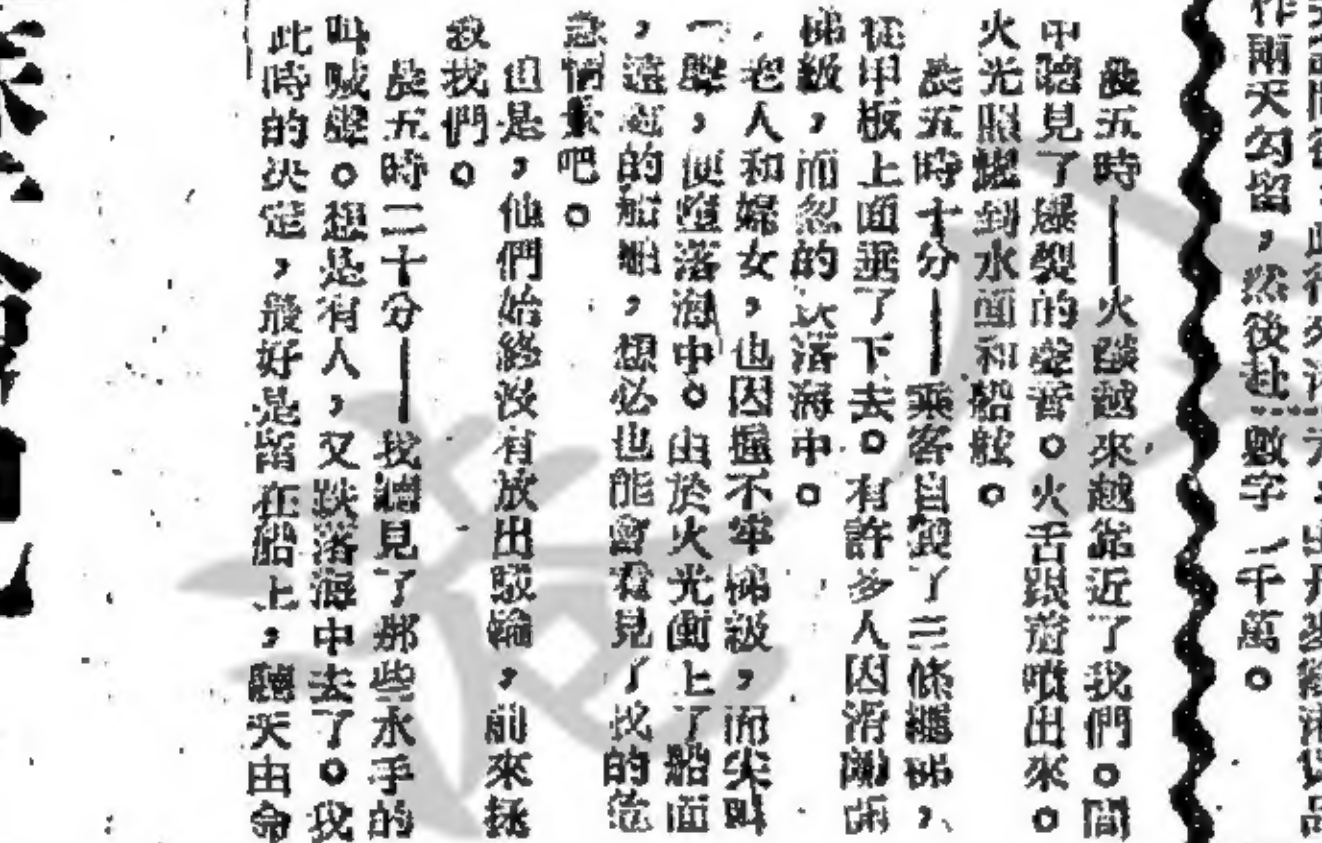 作兩天勾留,然後赴 數字 一千萬。
晨五時——火燄越來越靠近了我們。間
中聽見了爆裂的聲音。火舌跟着噴出來。
火光照耀到水面和船舷。
晨五時十分——乘客自製了三條繩梯,
從甲板上面垂了下去。有許多人因滑離兩
梯級,而忽的跌落海中。
老人和婦女,也因握不牢梯級,而尖叫
一聲,便墮落海中。由於火光衝上了船面
,遠處的船舶,想必也能會看見了我的危
急情景吧。
但是,他們始終沒有放出駁輪,前來拯
救我們。
晨五時二十分——我聽見了那些水手的
叫喊聲。想是有人,又跌落海中去了。我
此時的決定,最好是留在船上,聽天由命